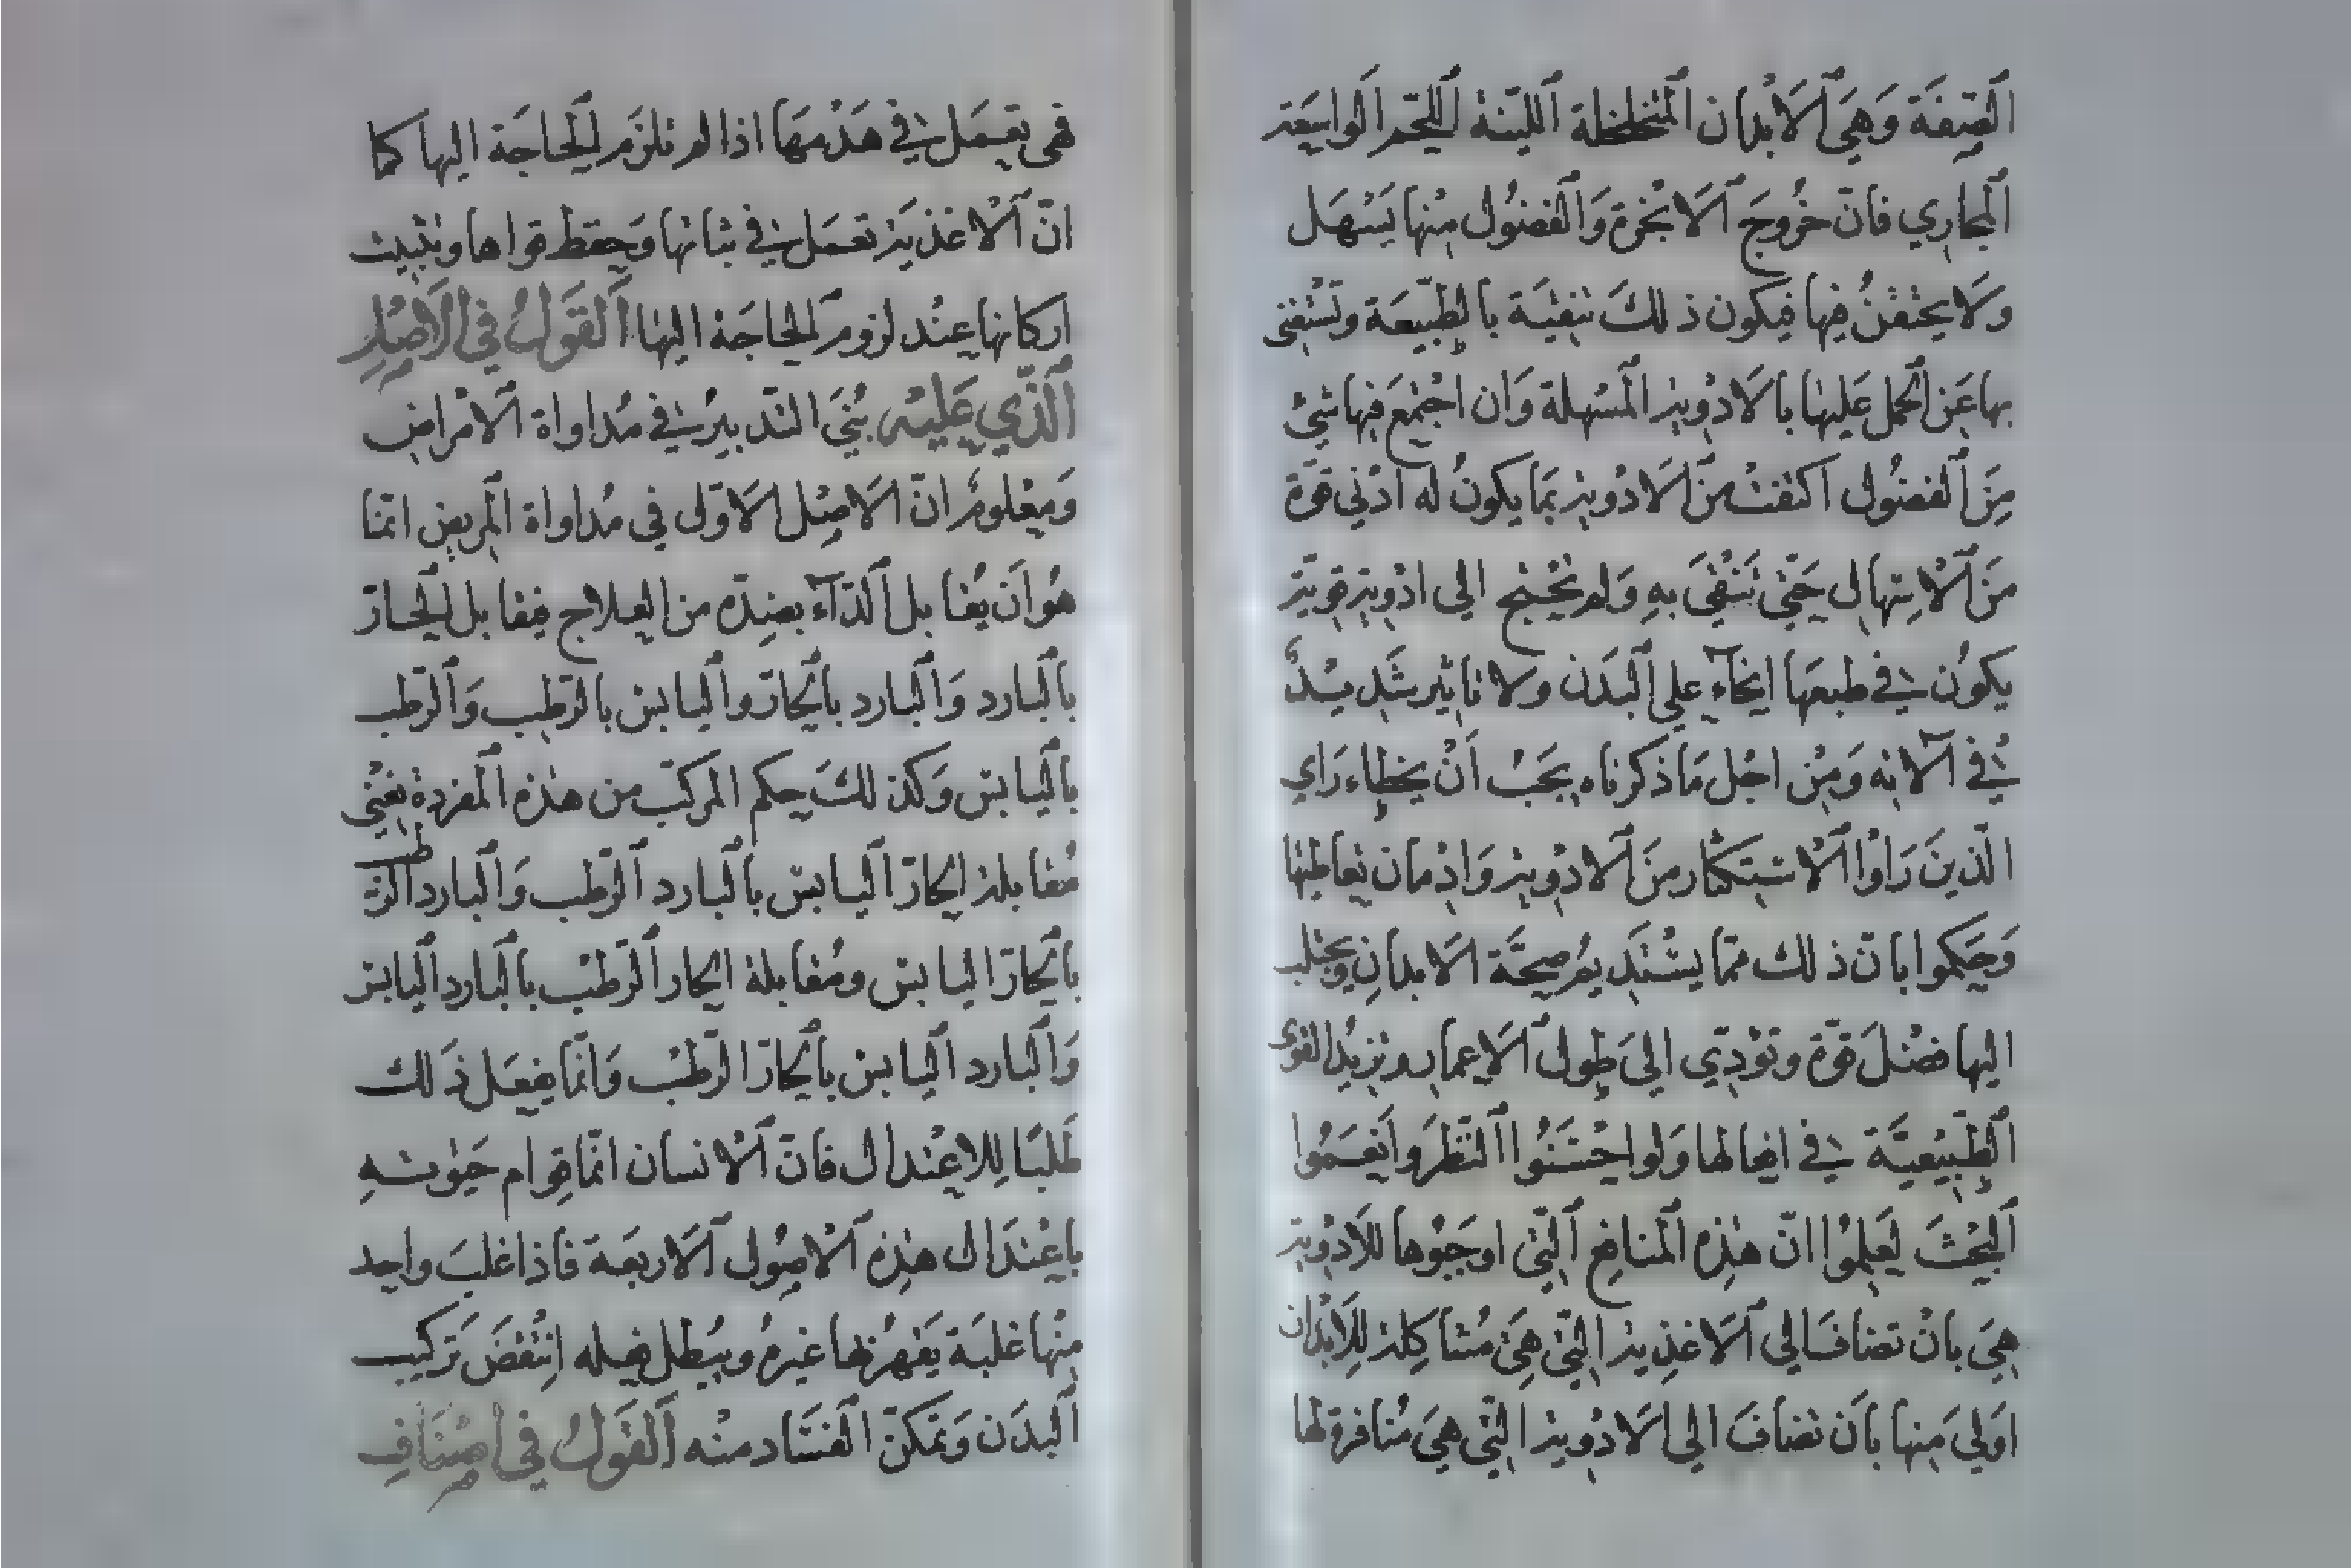 الصفة وَهيَ الاَبدان المتخلخلة اللينة اللحم الواسعة
المجاري فانّ خُروجَ الاَبخرة وَالفضُول مِنها يَسْهَل
وَلا يحتقنُ فيها فيكون ذلكَ تنقيَة بالطّبيعَة وتَسْتغنى
بها عَن الحمل عَليها بالاَدوية المسْهلة وَان اجتمعَ فيها شيْ
مِنَ الفضُول اكتفت منَ الاَدوية بمَا يكونُ له ادنى قوّة
مَن الاِسهال حَتّى تَنْقىَ بهِ وَلم تحْتج الى ادْوية قوية
يكوُن في طبعَها انحآء على البَدَن ولا تاثير شَديدٌ
في آلاته وَمِن اجْل مَا ذكرناه يجَبُ اَنْ يخطاء رَاي
الّذينَ رَاوْا الاسْتكثار منَ الادْوية وَادْمان تعاطيها
وَحَكموا بانّ ذلك ممّا يسْتَديم صحَّة الابدانِ ويجتلب
اليها فضْلَ قوّة وتؤدّي الىَ طول الاَعمار وتزيدُ القوى
الطّبيْعيَّة في افعالها وَلو احْسَنُوا النّظرَ وَانعَمُوا
البحْثَ لعَلِمُوا انّ هٰذِه المنافع الّتي اوجَبُوها للاَدْوية
هِيَ بانْ تضافَ الى الاَغذِية الّتي هِيَ مُشاكِلة لِلاَبْدان
اوَلى مِنها بأَن تضافَ الى الاَدْوية الّتي هيَ مُنافرة لها
فهى تعمَل في هَدْمهَا اذا لم تلزَم الحاجَة اليها كما
انّ الاْغذيَة تعمَل في بثاتها وَحفظ قواها وتثبيت
اركانها عِنْد لزوم الحاجَة اليْها اَلقَولُ في الَاصْلِ
اَلّذّي عَليْه بُنيَ التّدبيرُ في مُداواة الاَمْراض
وَمعْلومٌ انّ الاَصْل الاَوّلى في مُداواة المريض انمّا
هُو اَن يُقابل الدّآء بضِدّه من العِلاج فيقابل الحارّ
بالبارد وَالبارد بالحارّ واليابس بالرّطب وَالرّطب
باليابس وَكذلكَ حكم المركّب من هٰذه المفردة نعني
مُقابلة الحارّ اليابس بالبارد الرّطب وَالبارد الرّطب
بالحارّ اليابس ومُقابلة الحار الرّطبْ بالبارد اليابس
وَالبارد اليابس بالحارّ الرّطبْ وَانّما يفعَل ذَلك
طلبَا لِلاِعْتدال فانّ الاْنسان انّما قِوام حَيٰوتهِ
باعِتْدَال هٰذِه الاْصُول الاَربعَة فاذا غلبَ واحد
مِنْها غلبَة يَقْهرُ بها غيرهُ ويُبطل فعله اِنتُقضَ تَركيب
البدَن وَتمكنّ الفسَاد منْه اَلقَولُ في اصْنَافِ